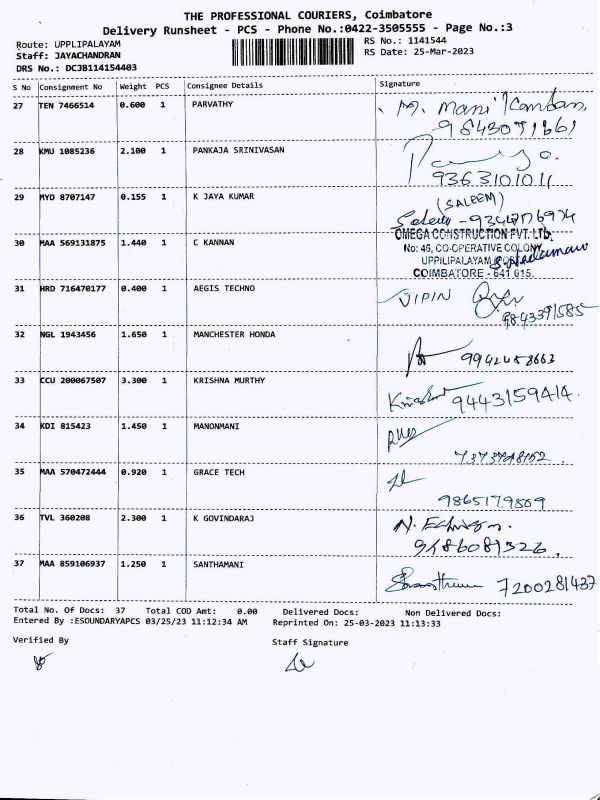 THE PROFESSIONAL COURIERS, Coimbatore
Delivery Runsheet - PCS - Phone No.:0422-3505555 - Page No.:3
Route: UPPLIPALAYAM
RS No.: 1141544
Staff: JAYACHANDRAN
RS Date: 25-Mar-2023
DRS No.: DCJB114154403
S No Consignment No Weight PCS Consignee Details Signature
27 TEN 7466514 0.600 1 PARVATHY
M. Mani
28 KMU 1085236 2.100 1 PANKAJA SRINIVASAN
9363101011
29 MYD 8707147 0.155 1 K JAYA KUMAR
(SALEEM)
30 MAA 569131875 1.440 1 C KANNAN
OMEGA CONSTRUCTION PVT. LTD.
No: 46, CO-OPERATIVE COLONY,
UPPILIPALAYAM POST
COIMBATORE - 641 015.
31 HRD 716470177 0.400 1 AEGIS TECHNO
VIPIN
9843391585
32 NGL 1943456 1.650 1 MANCHESTER HONDA
9942458663
33 CCU 200067507 3.300 1 KRISHNA MURTHY
9443159414.
34 KDI 815423 1.450 1 MANONMANI
35 MAA 570472444 0.920 1 GRACE TECH
9865179809
36 TVL 360208 2.300 1 K GOVINDARAJ
9486081326.
37 MAA 859106937 1.250 1 SANTHAMANI
7200281437
Total No. Of Docs: 37 Total COD Amt: 0.00 Delivered Docs: Non Delivered Docs:
Entered By :ESOUNDARYAPCS 03/25/23 11:12:34 AM Reprinted On: 25-03-2023 11:13:33
Verified By
Staff Signature